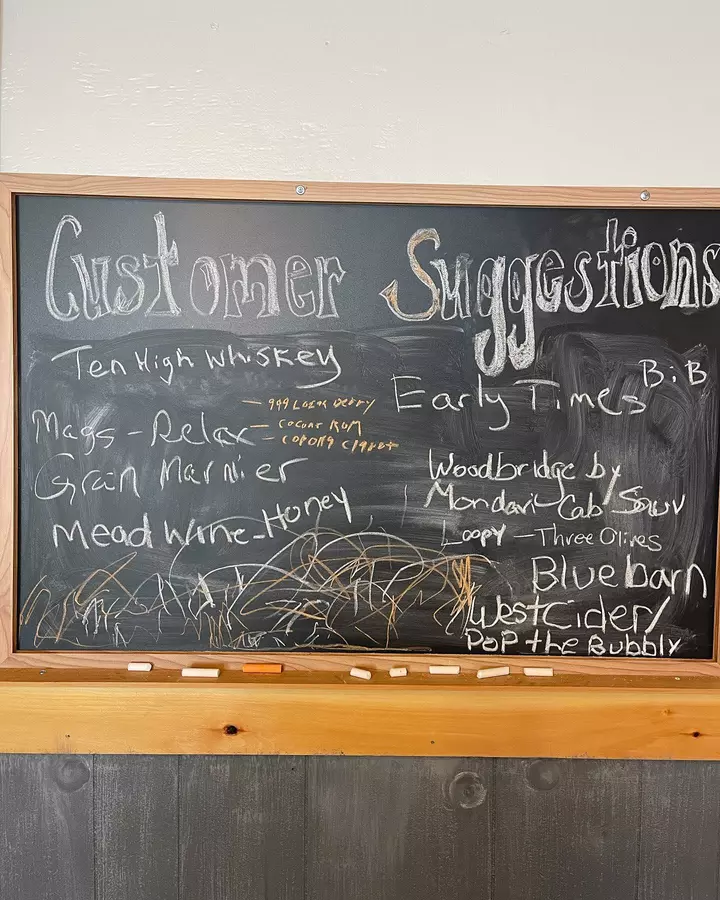 Customer Suggestions
Ten High Whiskey
Mags - Relax
- 
- Coconut RUM
- COPONA C
Gran Marnier
Mead Wine - Honey
B:B
Early Times
Woodbridge by
Mondavi - Cab/Sauv
Loopy - Three Olives
Bluebarn
West Cider/
POP the Bubbly